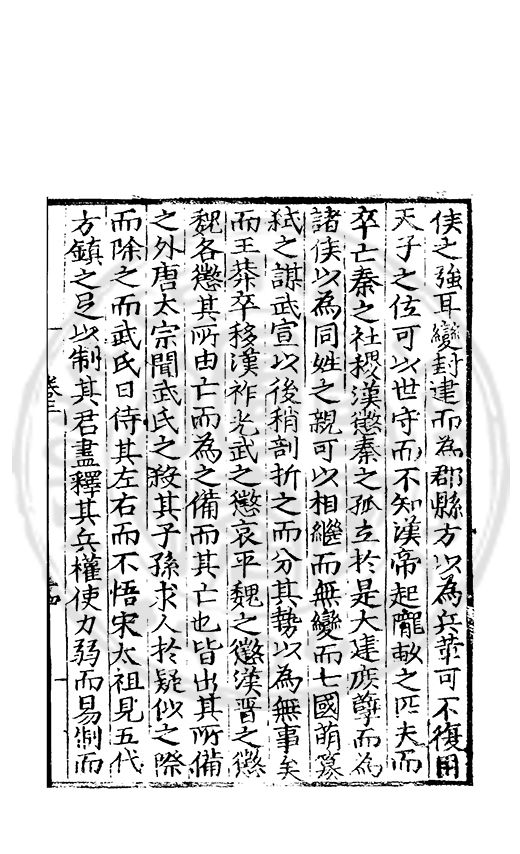 侯之強耳變封建而為郡縣方以為兵革可不復用
天子之位可以世守而不知漢帝起隴畝之匹夫而
卒亡秦之社稷漢懲秦之孤立於是大建庶孽而為
諸侯以為同姓之親可以相繼而無變而七國萌篡
弒之謀武宣以後稍剖折之而分其勢以為無事矣
而王莽卒移漢祚光武之懲哀平魏之懲漢晉之懲
魏各懲其所由亡而為之備而其亡也皆出其所備
之外唐太宗聞武氏之殺其子孫求人於疑似之際
而除之而武氏日侍其左右而不悟宋太祖見五代
方鎮之足以制其君盡釋其兵權使力弱而易制而
卷三